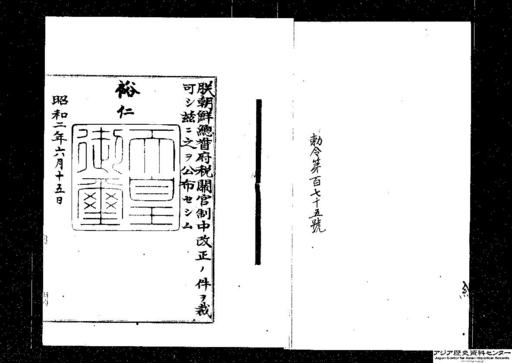 勅令第百七十五號
朕朝鮮總督府税關官制中改正ノ件ヲ裁
可シ玆ニ之ヲ公布セシム
裕仁
天皇
御璽
昭和二年六月十五日
アジア歴史資料センター
Japan Center for Asian Historical Records